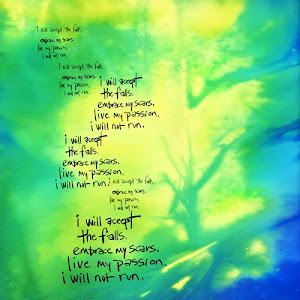 i will accept the falls.
embrace my scars.
live my passion.
i will not run.
i will accept the falls.
embrace my scars.
live my passion.
i will not run.
i will accept
the falls.
embrace my scars.
live my passion.
i will not run.
i will accept
the falls.
embrace my scars.
live my passion.
i will not run.
i will accept the falls.
embrace my scars.
live my passion.
i will not run.
i will accept
the falls.
embrace my scars.
live my passion.
i will not run.